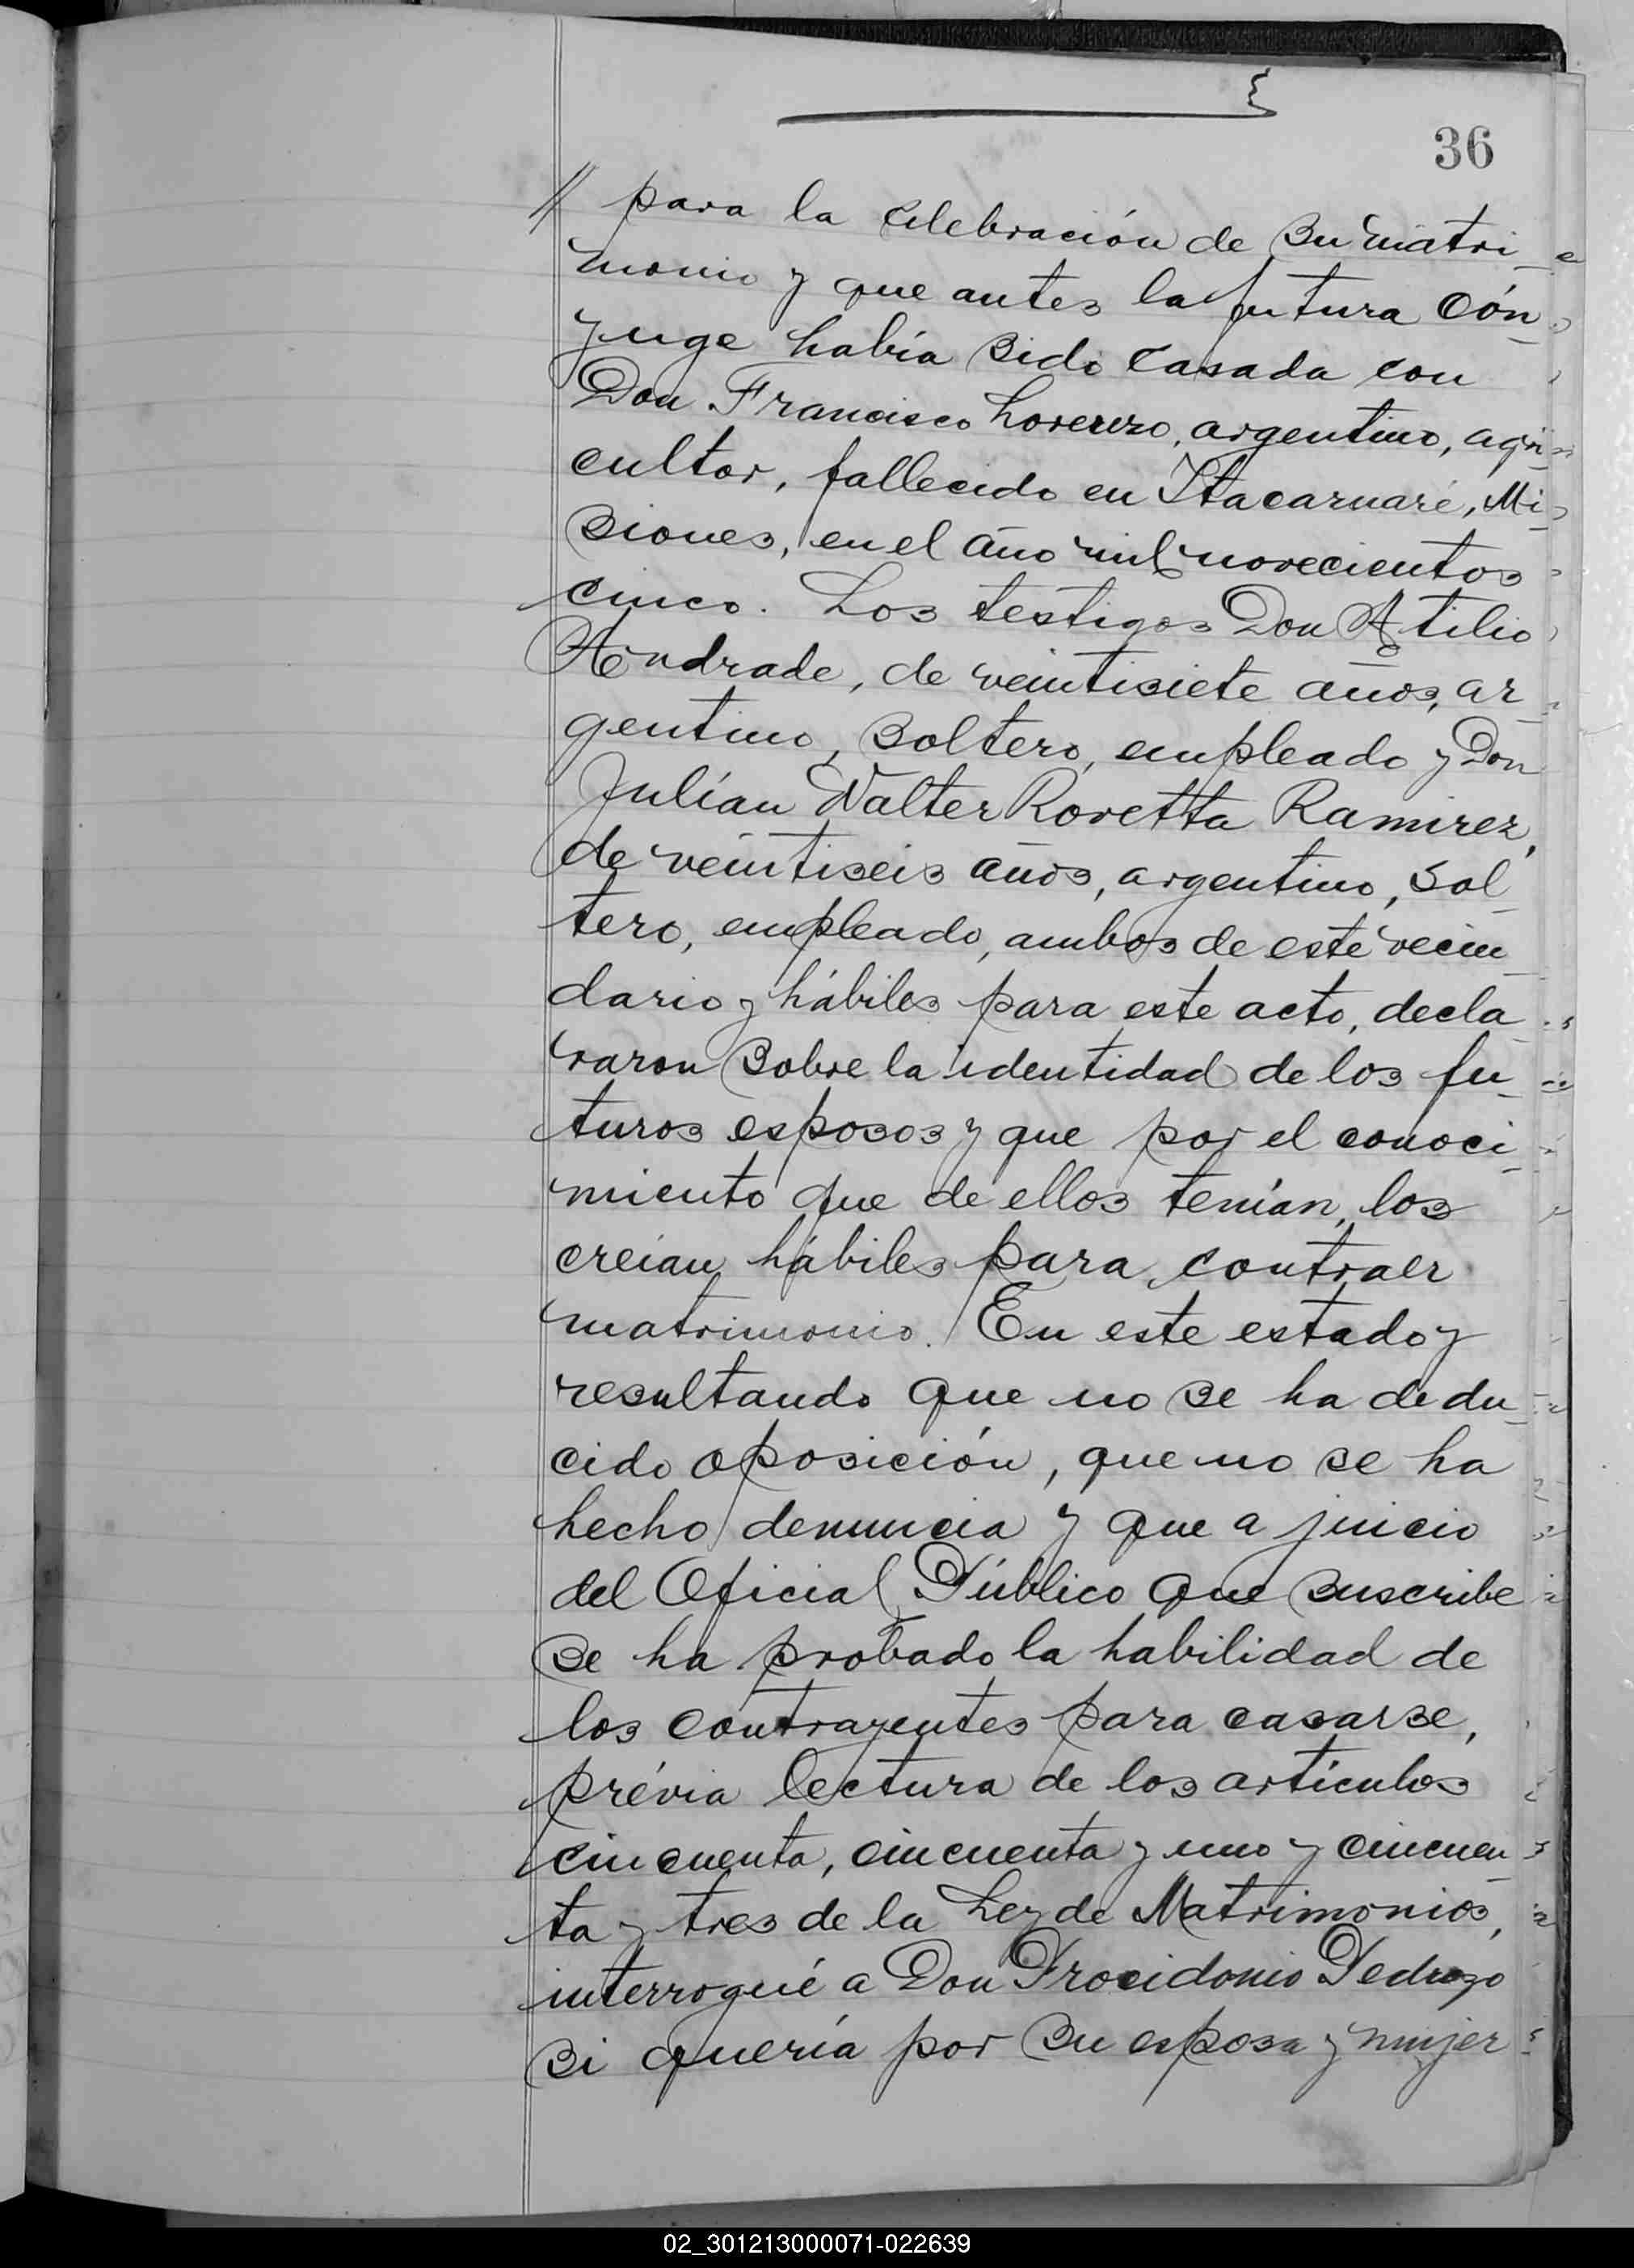 36
// para la celebración de su matri_
monio y que antes la futura cón_
yuge había sido casada con
Don Francisco Lorenzo, argentino, agri_
cultor, fallecido en Itacaruaré, Mi_
siones, en el año mil novecientos
cinco. Los testigos Don Atilio
Andrade, de veintisiete años, ar_
gentino, soltero, empleado y Don
Julían Walter Rovetta Ramirez,
de veintiseis años, argentino, sol_
tero, empleado, ambos de este vecin_
dario y hábiles para este acto, decla_
raron sobre la identidad de los fu_
turos esposos y que por el conoci_
miento que de ellos tenían, los
creían hábiles para contraer
matrimonio. En este estado y
resultando que no se ha dedu_
cido oposición, que no se ha
hecho denuncia y que a juicio
del Oficial Público que suscribe
se ha probado la habilidad de
los contrayentes para casarse,
prévia lectura de los artículos
cincuenta, cincuenta y uno y cincuen_
ta y tres de la Ley de Matrimonios,
interrogué a Don Procidonio Pedrozo
si quería por su esposa y mujer
02_301213000071-022639